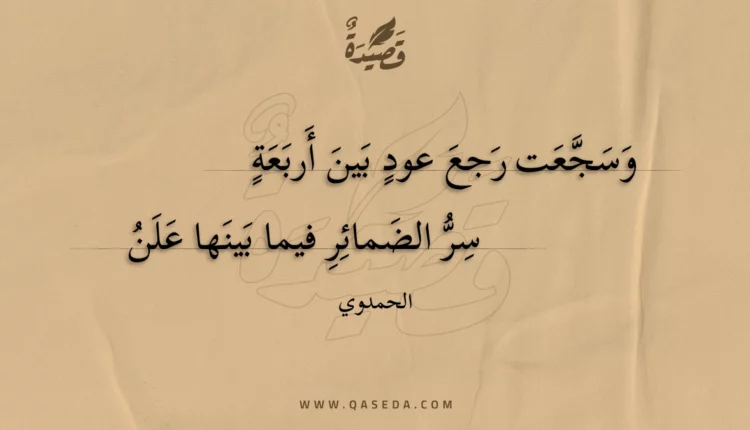 قَصِيْدَةٌ
وَسَجَّعَت رَجعَ عودٍ بَينَ أَربَعَةٍ
سِرُّ الضَمائِرِ فيما بَينَها عَلَنُ
الحمدوي
WWW.QASEDA.COM